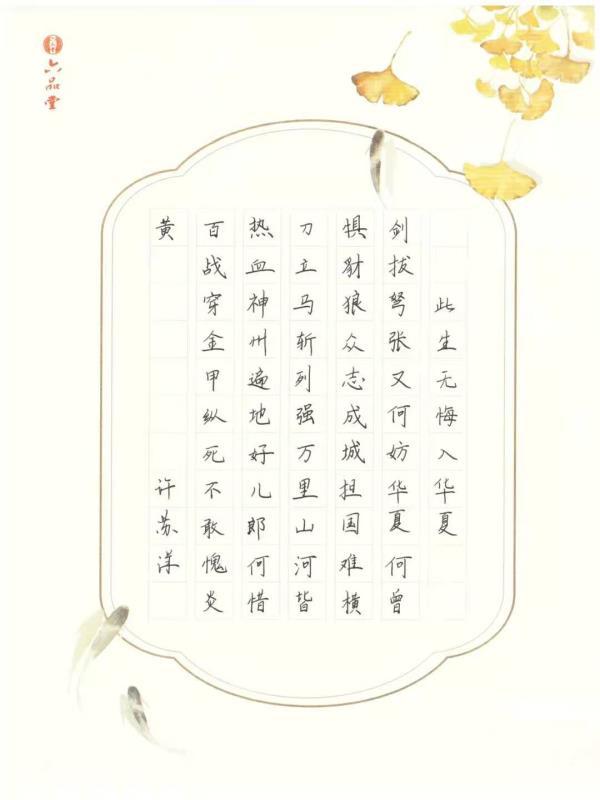 此生无悔入华夏
剑拔弩张又何妨华夏何曾
惧豺狼众志成城担国难横
刀立马斩列强万里山河皆
热血神州遍地好儿郎何惜
百战穿金甲纵死不敢愧炎
黄
许苏洋
六品堂